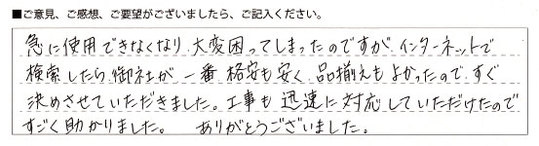 ■ご意見、ご感想、ご要望がございましたら、ご記入ください。
急に使用できなくなり、大変困ってしまったのですが、インターネットで
検索したら、御社が一番格安も安く、品揃えもよかったので、すぐ
決めさせていただきました。工事も迅速に対応していただけたので
すごく助かりました。 ありがとうございました。